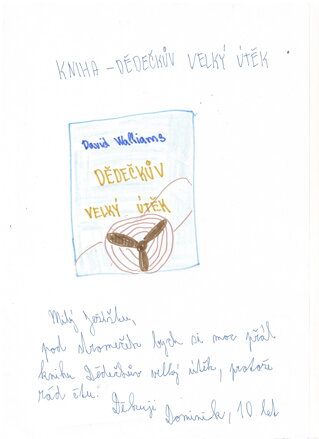 KNIHA - DĚDEČKŮV VELKÝ ÚTĚK
David Walliams
DĚDEČKŮV
VELKÝ ÚTĚK
Milý Ježíšku,
pod stromeček bych si moc přál
knihu Dědečkův velký útěk, protože
rád čtu!
Děkuji
Dominik, 10 let